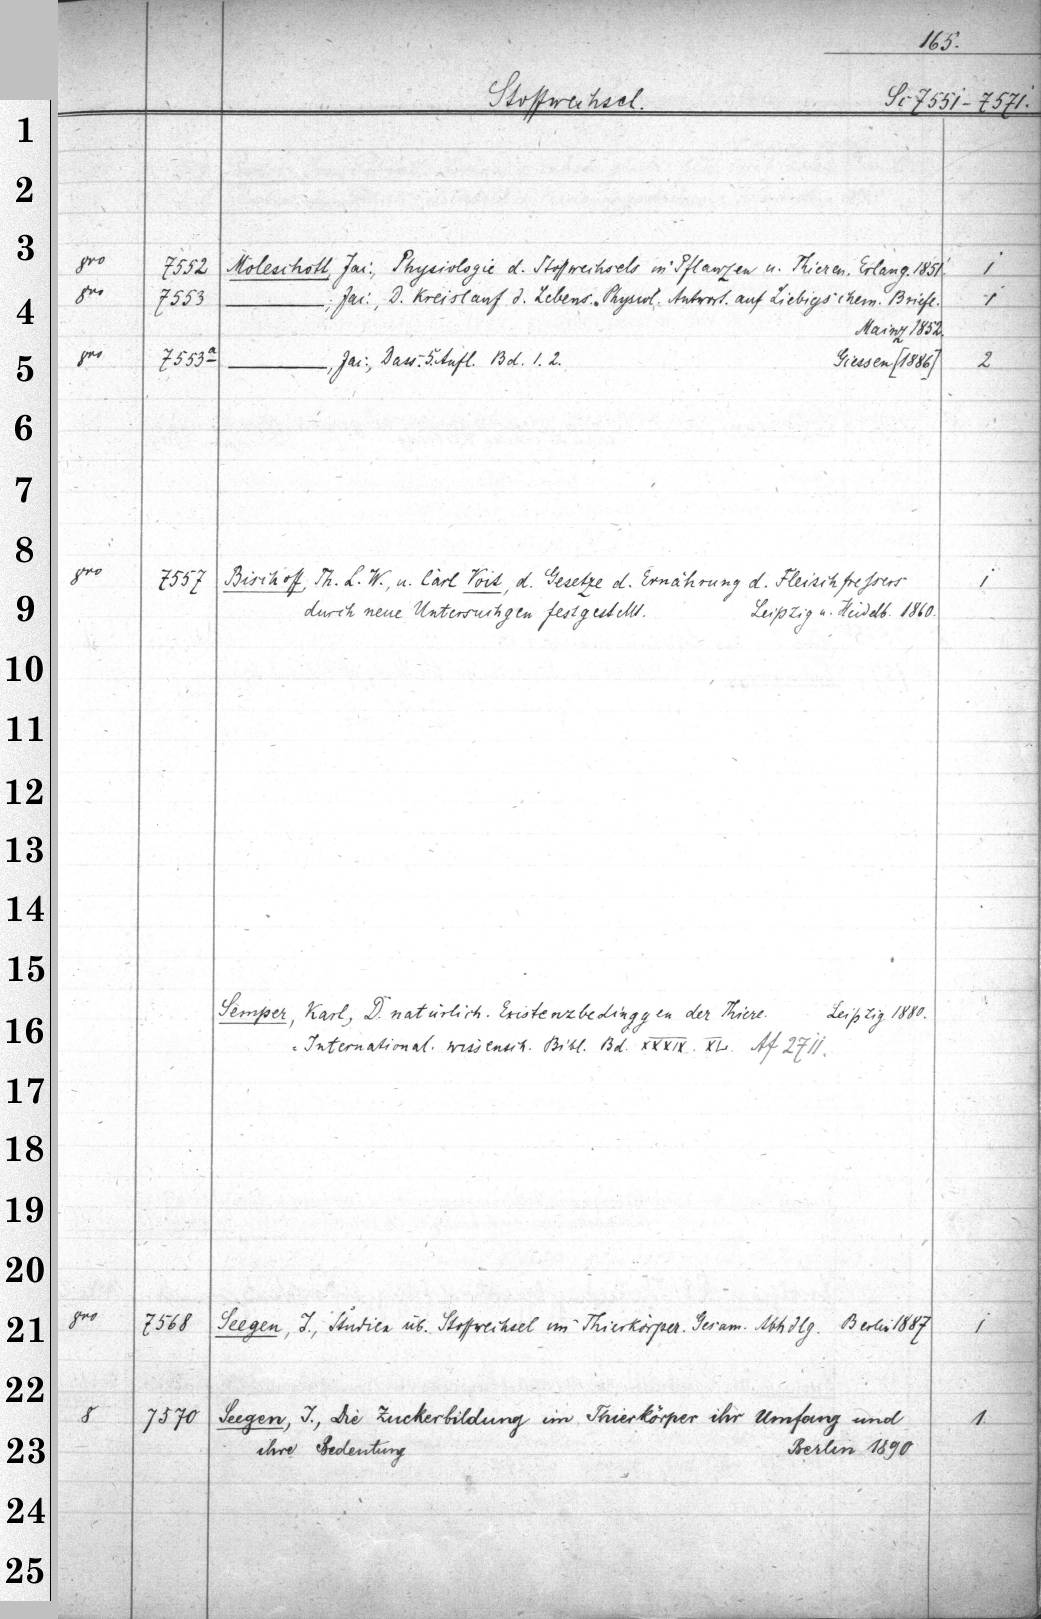 165.
Stoffwechsel. Si 7551 - 7571.
1
2
3
gro 7552 Moleschott, Jac., Physiologie d. Stoffwechsels in Pflanzen u. Thieren. Erlang. 1851 1
4
gro 7553 ———, Jac., D. Kreislauf d. Lebens. Physiol. Antwort. auf Liebigs chem. Briefe. 1
Mainz 1852.
5
gro 7553a ———, Jac., Dass. 5. Aufl. Bd. 1. 2. Giessen [1886] 2
6
7
8
gro 7557 Bischoff, Th. L. W., u. Carl Voit, d. Gesetze d. Ernährung d. Fleischfressers 1
9
durch neue Untersuchgen festgestellt. Leipzig u. Heidelb. 1860.
10
11
12
13
14
15
Semper, Karl, D. natürlich. Existenzbedinggen der Thiere. Leipzig 1880.
16
= International. wissensch. Bibl. Bd. XXXIX. XL. Af 2711.
17
18
19
20
21
gro 7568 Seegen, J., Studien üb. Stoffwechsel im Thierkörper. Gesam. Abhdlg. Berlin 1887 1
22
8 7570 Seegen, J., Die Zuckerbildung im Thierkörper ihr Umfang und 1
23
ihre Bedeutung Berlin 1890
24
25